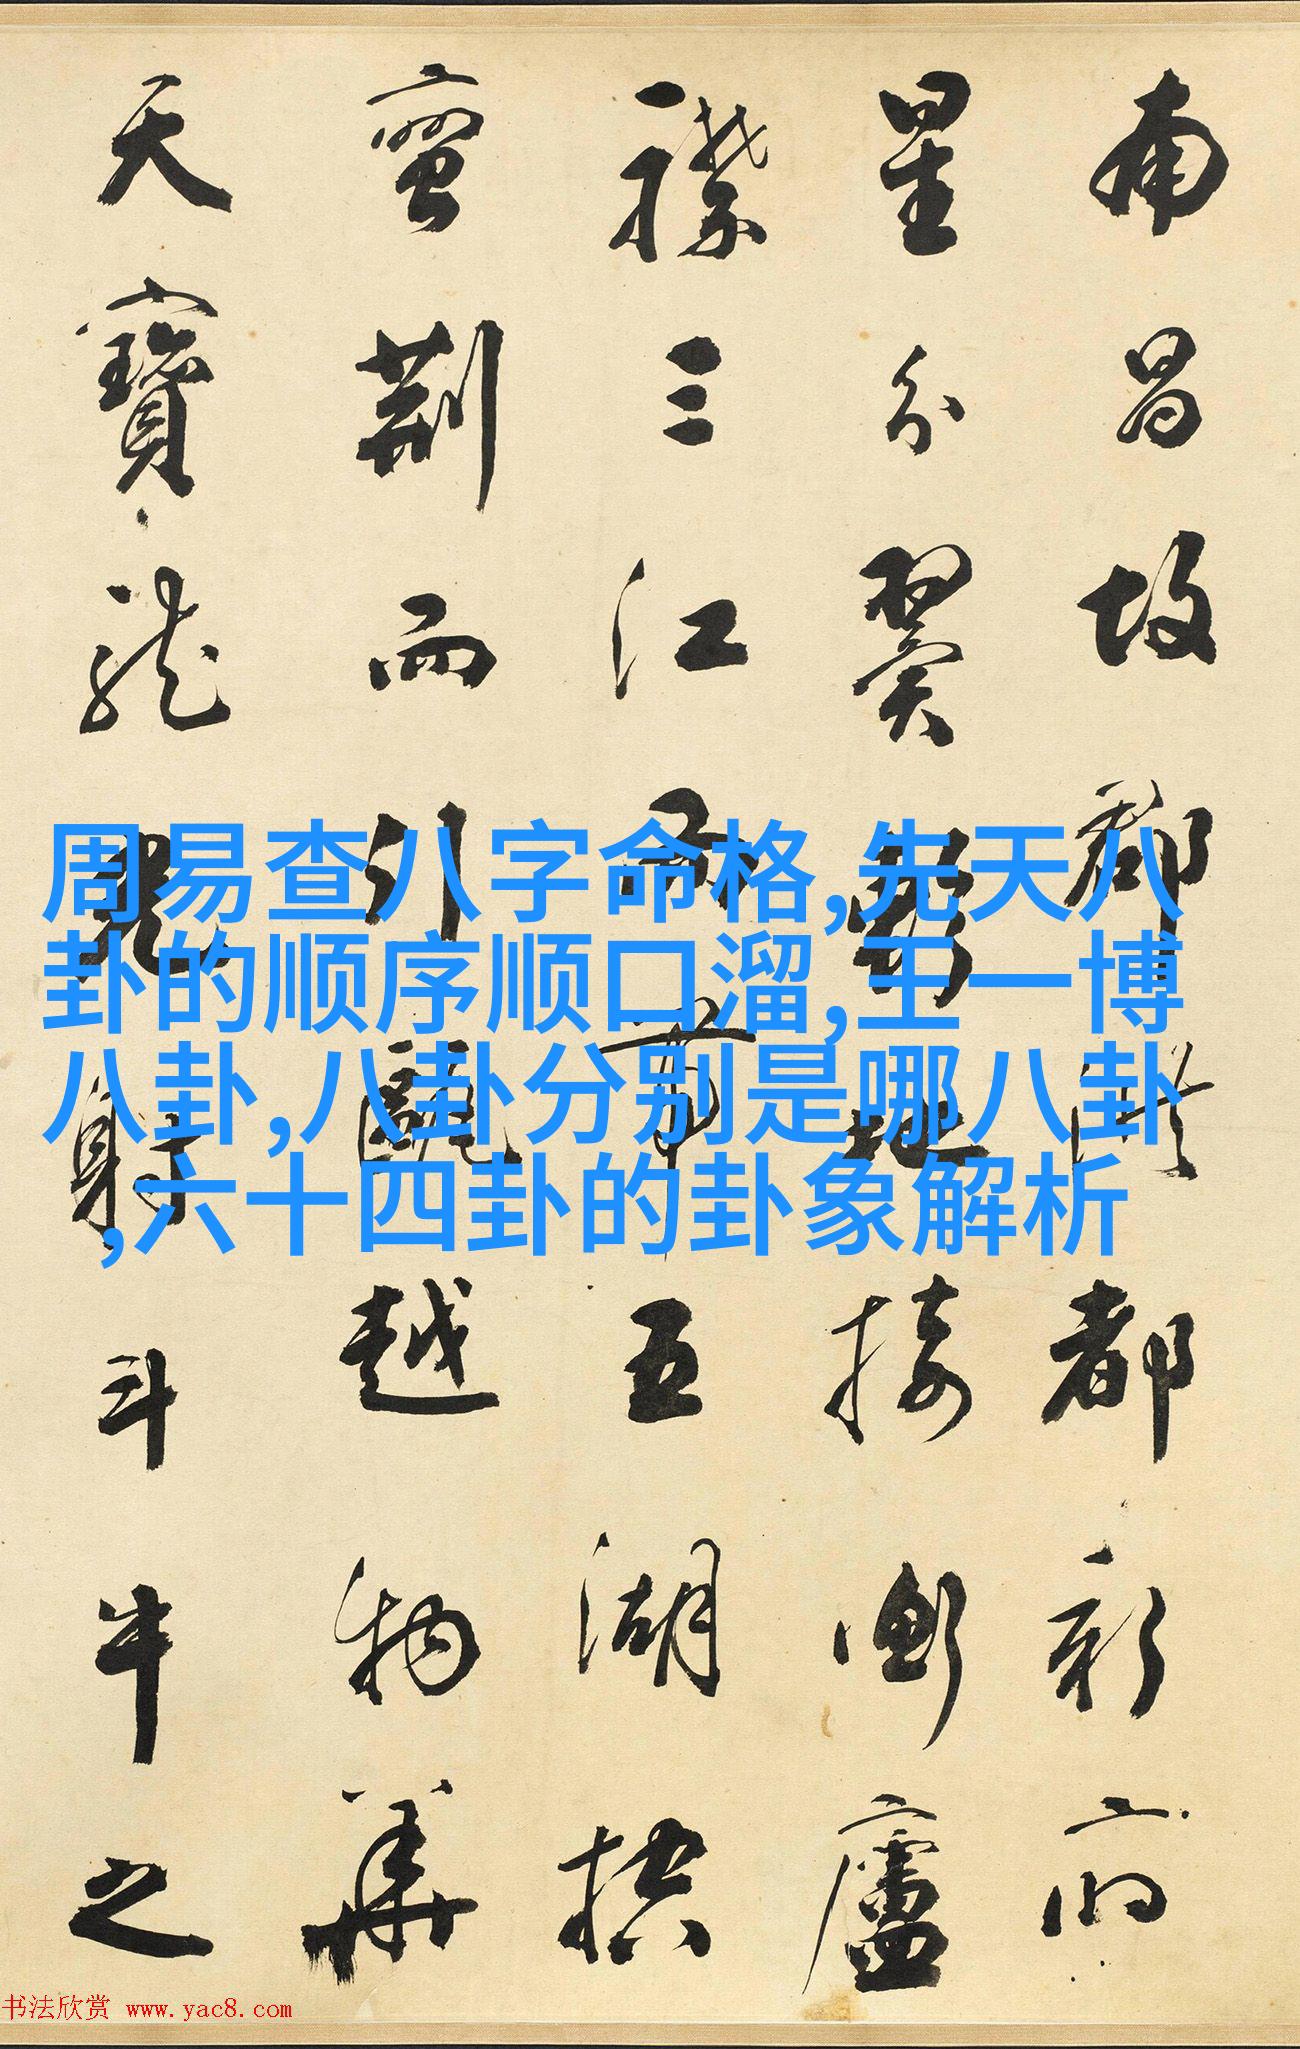 南昌故郡洪都新府
星分翼軫地接衡廬
襟三江而帶五湖控
蠻荊而引甌越物華
天寶龍光射斗牛之
周易查八字命格,先天八
卦的顺序顺口溜,王一博
八卦,八卦分别是哪八卦
,六十四卦的卦象解析
书法欣赏 www.yac8.com